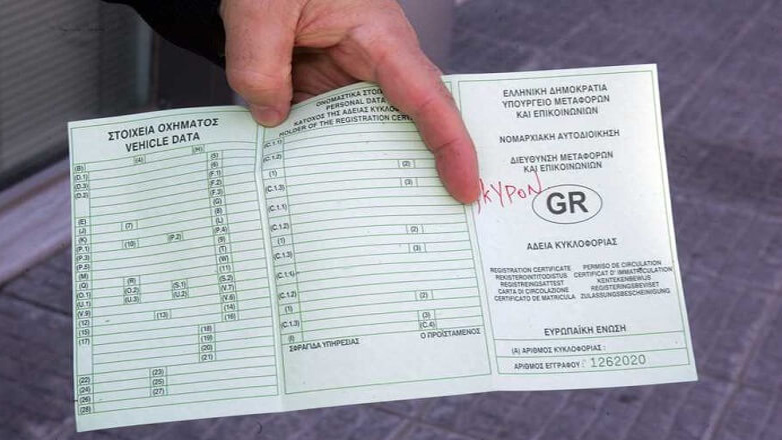 ΣΤΟΙΧΕΙΑ ΟΧΗΜΑΤΟΣ
VEHICLE DATA
(A) (H)
(B) (5)
(D.1) (E.1)
(D.3) (F.2)
(D.2) (F.3)
(G)
(E) (8)
(J) (7) (L)
(K) (P.2) (P.4)
(P.1) (10) (9)
(P.3) (T)
(P.5) (W)
(M) (11)
(Q) (R) (S.1) (S.2)
(O.1) (O.2) (U.2) (V.7)
(U.1) (U.3) (V.9)
(V.9) (14)
(12) (13) (16)
(15) (18)
(17) (19)
(20)
(21)
(22) (23)
(24) (25)
(26) (27)
(28)
ΟΝΟΜΑΣΤΙΚΑ
PERSONAL DATA
ΚΑΤΟΧΟΣ ΤΗΣ ΑΔΕΙΑΣ
HOLDER OF THE REGISTRATION
(C.1.1)
(C.1.2)
(1) (2)
(C.1.3) (3)
(C.1.1)
(C.1.2)
(1) (2)
(C.1.3) (3)
(C.1.1)
(C.1.2) (2)
(1) (3)
(C.1.3) (C.4)
(I)
ΣΦΡΑΓΙΔΑ ΥΠΗΡΕΣΙΑΣ Ο ΠΡΟΪΣΤΑΜΕΝΟΣ
ΕΛΛΗΝΙΚΗ ΔΗΜΟΚΡΑΤΙΑ
ΥΠΟΥΡΓΕΙΟ ΜΕΤΑΦΟΡΩΝ
ΚΑΙ ΕΠΙΚΟΙΝΩΝΙΩΝ
ΝΟΜΑΡΧΙΑΚΗ ΑΥΤΟΔΙΟΙΚΗΣΗ
ΔΙΕΥΘΥΝΣΗ ΜΕΤΑΦΟΡΩΝ
ΚΑΙ ΕΠΙΚΟΙΝΩΝΙΩΝ
GR
ΑΔΕΙΑ ΚΥΚΛΟΦΟΡΙΑΣ
REGISTRATION CERTIFICATE PERMISO DE CIRCULACION
REKISTEROINTITODISTUS CERTIFICAT D' IMMATRICULATION
REGISTREINGSATTEST KENTEKENBEWIJS
CARTA DI CIRCOLAZIONE REGISTERINGSBEVISET
CERTIFICATO DE MATRICULA ZULASSUNGSBESCHEINIGUNG
ΕΥΡΩΠΑΪΚΗ ΕΝΩΣΗ
(A) ΑΡΙΘΜΟΣ ΚΥΚΛΟΦΟΡΙΑΣ :
ΑΡΙΘΜΟΣ ΕΓΓΡΑΦΟΥ : 1262020